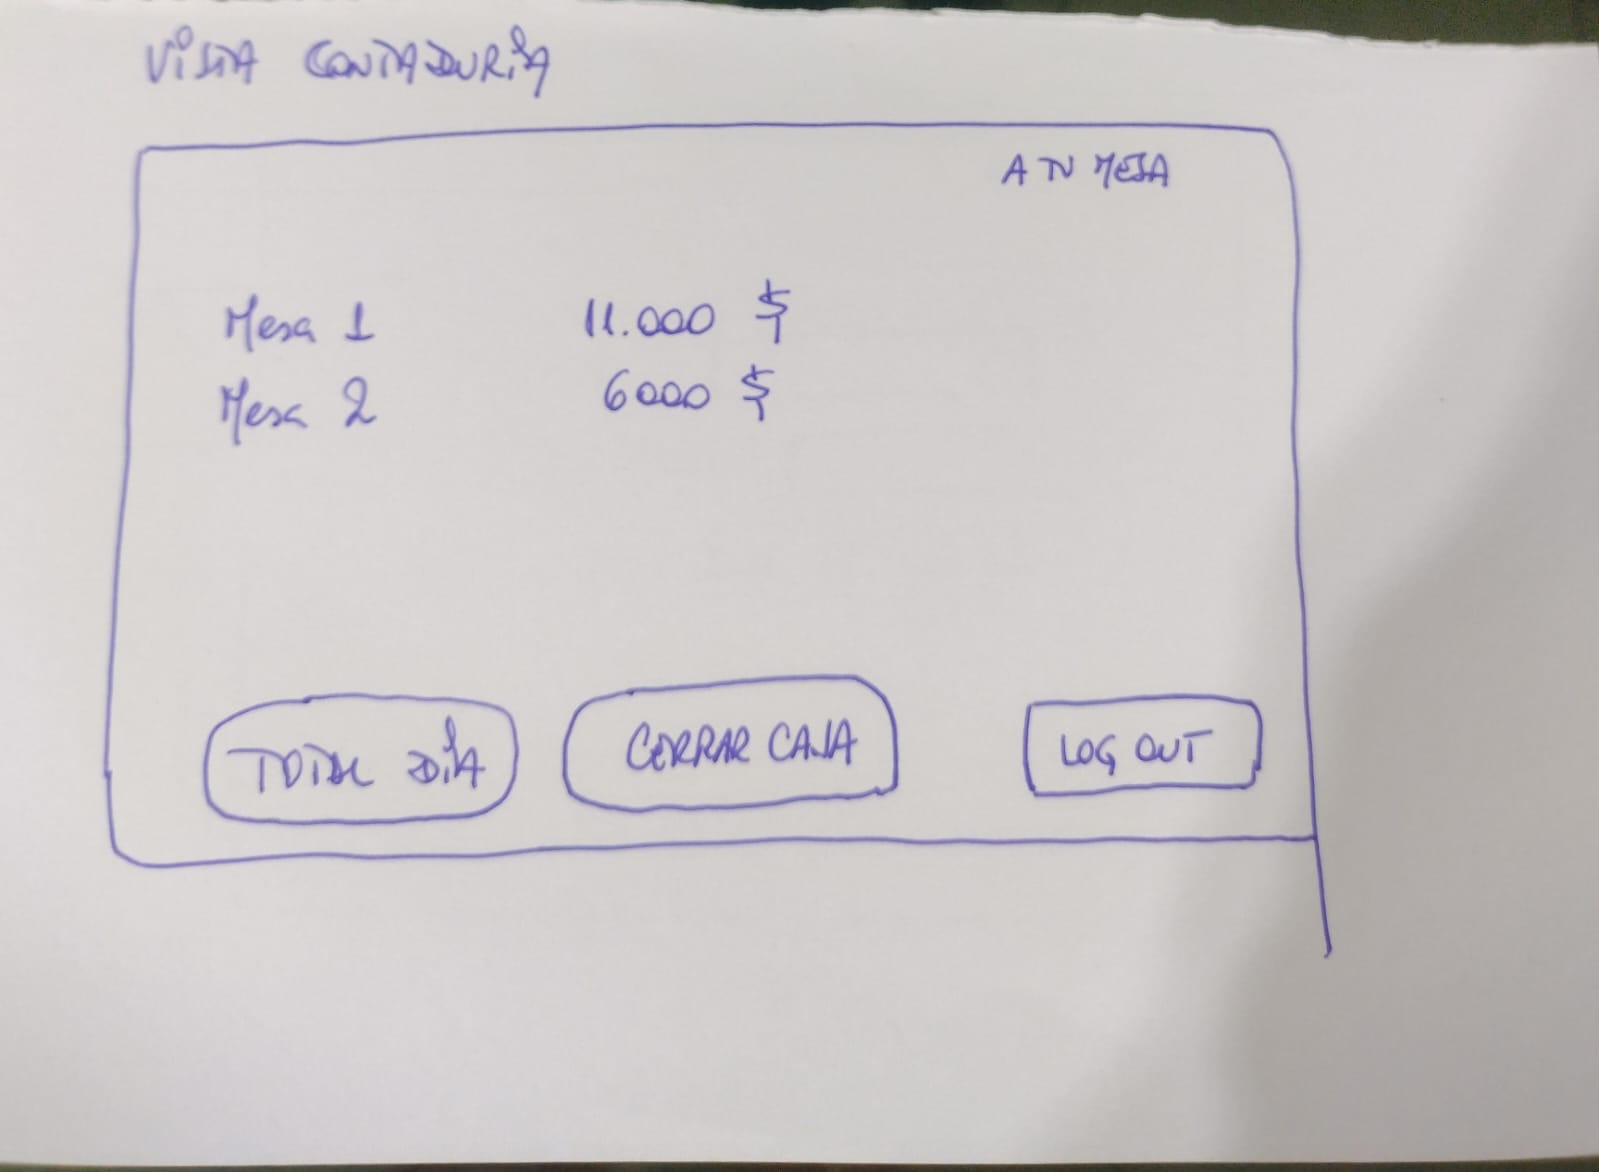 VISTA CONTADURÍA
A TU MESA
Mesa 1 11.000 $
Mesa 2 6000 $
TOTAL DÍA
CERRAR CAJA
LOG OUT